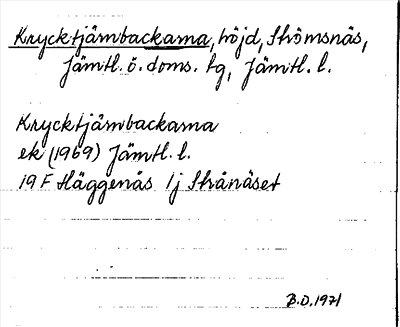 Krycktjärnbackarna, höjd, Strömsnäs,
Jämtl. ö. doms. tg, Jämtl. l.
Krycktjärnbackarna
ek (1969) Jämtl. l.
19 F Häggenås 1j Stränäset
B.D. 1971